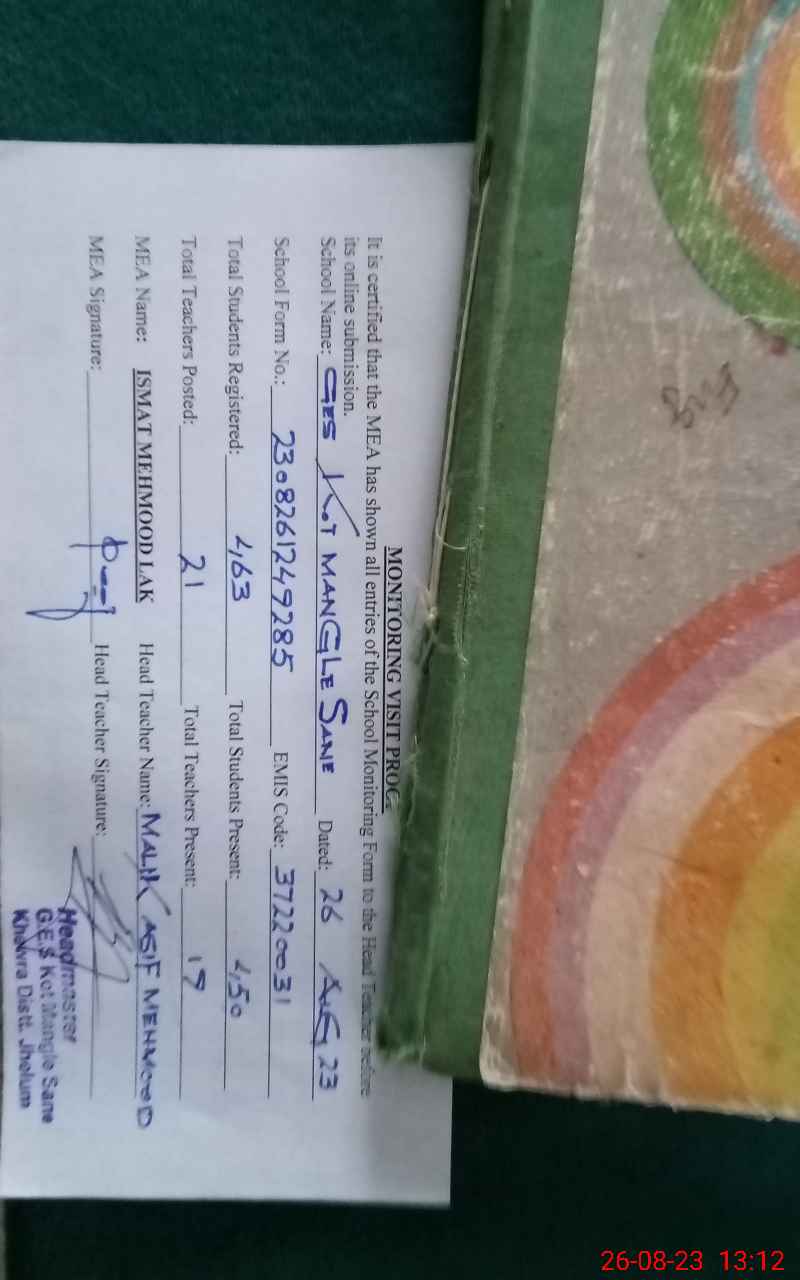 MONITORING VISIT PROC
It is certified that the MEA has shown all entries of the School Monitoring Form to the Head Teacher before
its online submission.
School Name: GES KOT MANGLE SANE Dated: 26 AUG 23
School Form No.: 230826124 9285 EMIS Code: 37220031
Total Students Registered: 463 Total Students Present: 450
Total Teachers Posted: 21 Total Teachers Present: 19
MEA Name: ISMAT MEHMOOD LAK Head Teacher Name: MALIK ASIF MEHMOOD
MEA Signature: Head Teacher Signature:
Headmaster
G.E.S Kot Mangle Sane
Khewra Distt. Jhelum
Eng
26-08-23 13:12